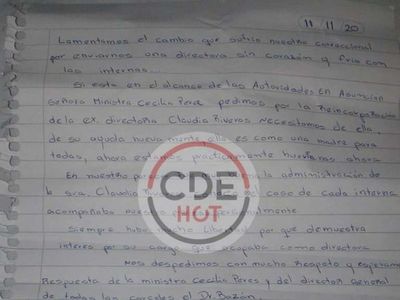 11/11/20
Lamentamos el cambio que sufrio nuestro correccional
por enviarnos una directora sin corazón y fria con
las internas...
Si esta en el alcance de las Autoridades en Asunción
señora Ministra Cecilia Perez pedimos por la Reincorporación
de la ex. directora Claudia Riveros necesitamos de ella,
de su ayuda nuevamente, ella es como una madre para
todas, ahora estamos practicamente huerfanas ahora
En nuestro la administración de
la sra. Claudia caso de cada interna
acompañaba personalmente
Siempre hubo mucho por que demuestra
interes por su cargo que ocupaba como directora
Nos despedimos con mucho Respeto y esperamos
Respuesta de la ministra Cecilia Peres y del director general
de todas las carceles el Dr. Bazán
CDE
HOT